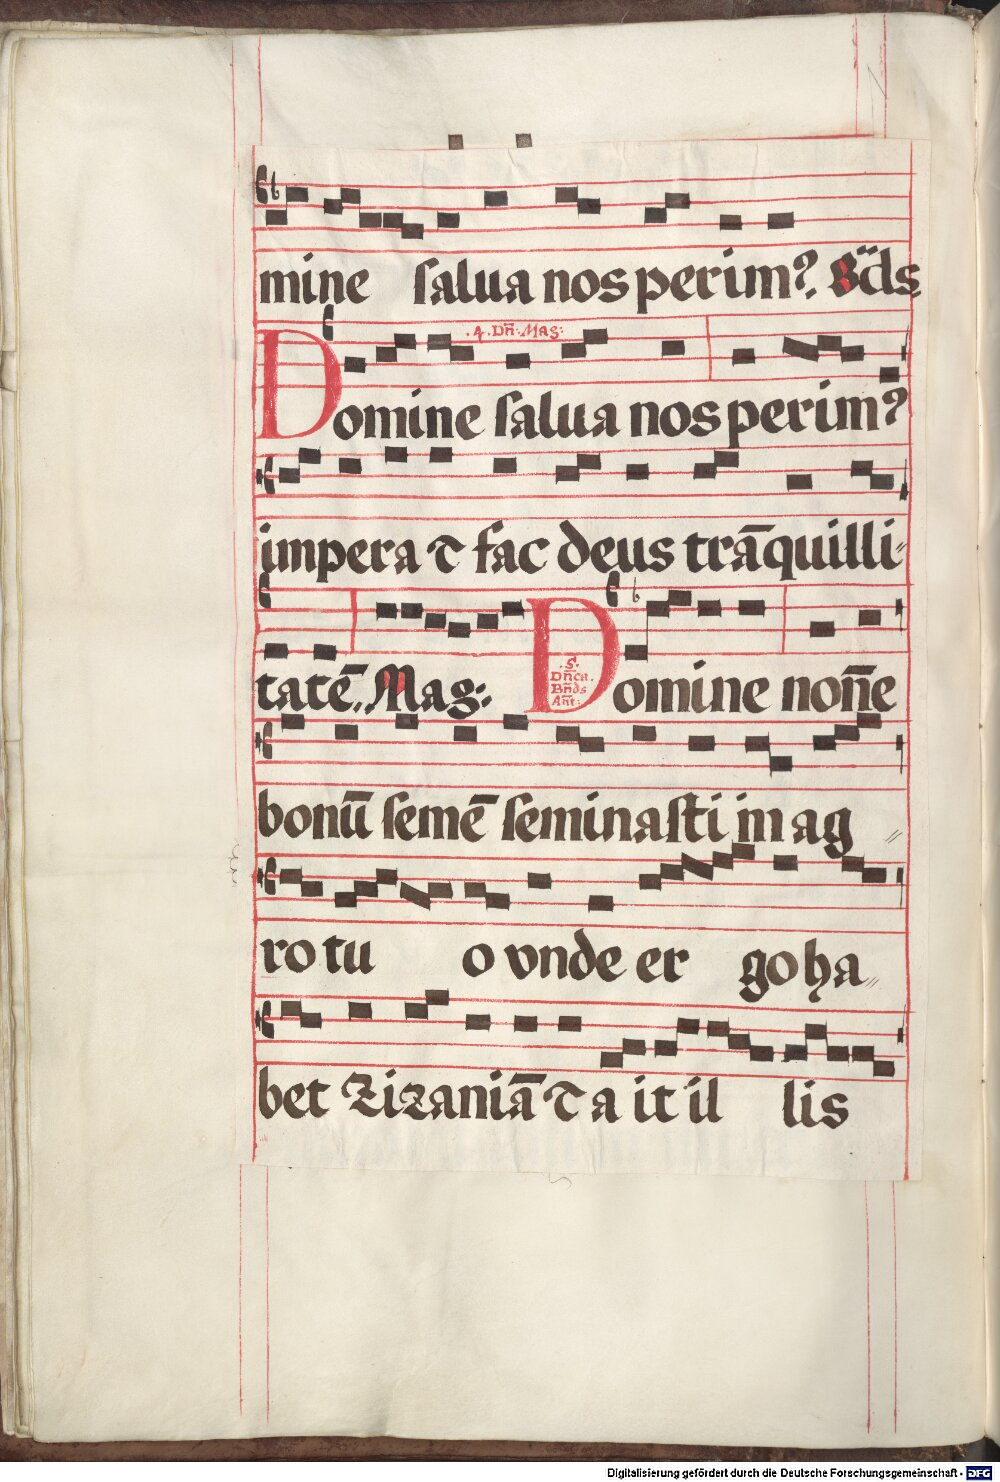 mine salua nos perim? B̃ds
.4. Dñ: Mag:
Domine salua nos perim?
impera ⁊ fac deus trāquilli〃
tatē. Mag:
.5. Dñca. Bñds Añt:
Domine non̄e
bonū semē seminasti in ag〃
ro tu o vnde er go ha〃
bet zizaniā ⁊ a it il lis
Digitalisierung gefördert durch die Deutsche Forschungsgemeinschaft - DFG